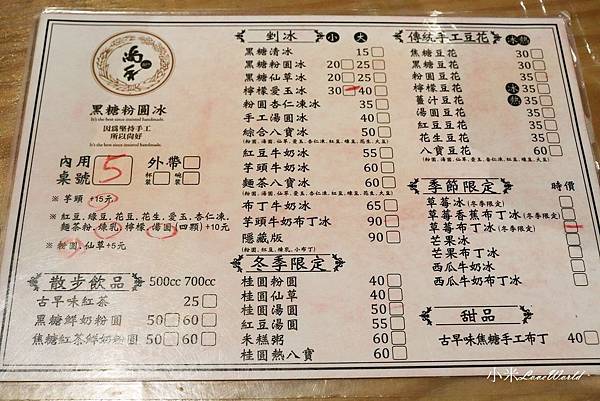 黑糖粉圓冰
It's the best since insisted handmade.
因為堅持手工
所以尚好
內用 外帶
桌號 5 杯裝 碗裝
※ 芋頭 +15元
※ 紅豆、綠豆、花豆、花生、愛玉、杏仁凍、
麵茶粉、煉乳、檸檬、湯圓(四顆)+10元
※ 粉圓、仙草+5元
散步飲品 500cc 700cc
古早味紅茶 25
黑糖鮮奶粉圓 50 60
焦糖紅茶鮮奶粉圓 50 60
剉冰 小 大
黑糖清冰 15
黑糖粉圓冰 20 25
黑糖仙草冰 20 25
檸檬愛玉冰 30 40
粉圓杏仁凍冰 35
手工湯圓冰 40
綜合八寶冰 50
紅豆牛奶冰 55
芋頭牛奶冰 60
麵茶八寶冰 60
布丁牛奶冰 65
芋頭牛奶布丁冰 90
隱藏版 90
(粉圓、紅豆、煉乳、小布丁)
冬季限定
桂圓粉圓 40
桂圓仙草 40
桂圓湯圓 50
紅豆湯圓 55
米糕粥 60
桂圓熱八寶 60
傳統手工豆花 冰 熱
焦糖豆花 30
黑糖豆花 30
粉圓豆花 35
檸檬豆花 冰 35
薑汁豆花 熱 35
湯圓豆花 40
紅豆豆花 40
花生豆花 40
八寶豆花 60
季節限定 時價
草莓冰(冬季限定)
草莓香蕉布丁冰(冬季限定)
草莓布丁冰(冬季限定)
芒果冰
芒果布丁冰
西瓜牛奶冰
西瓜牛奶布丁冰
甜品
古早味焦糖手工布丁 40
小米LoveWorld